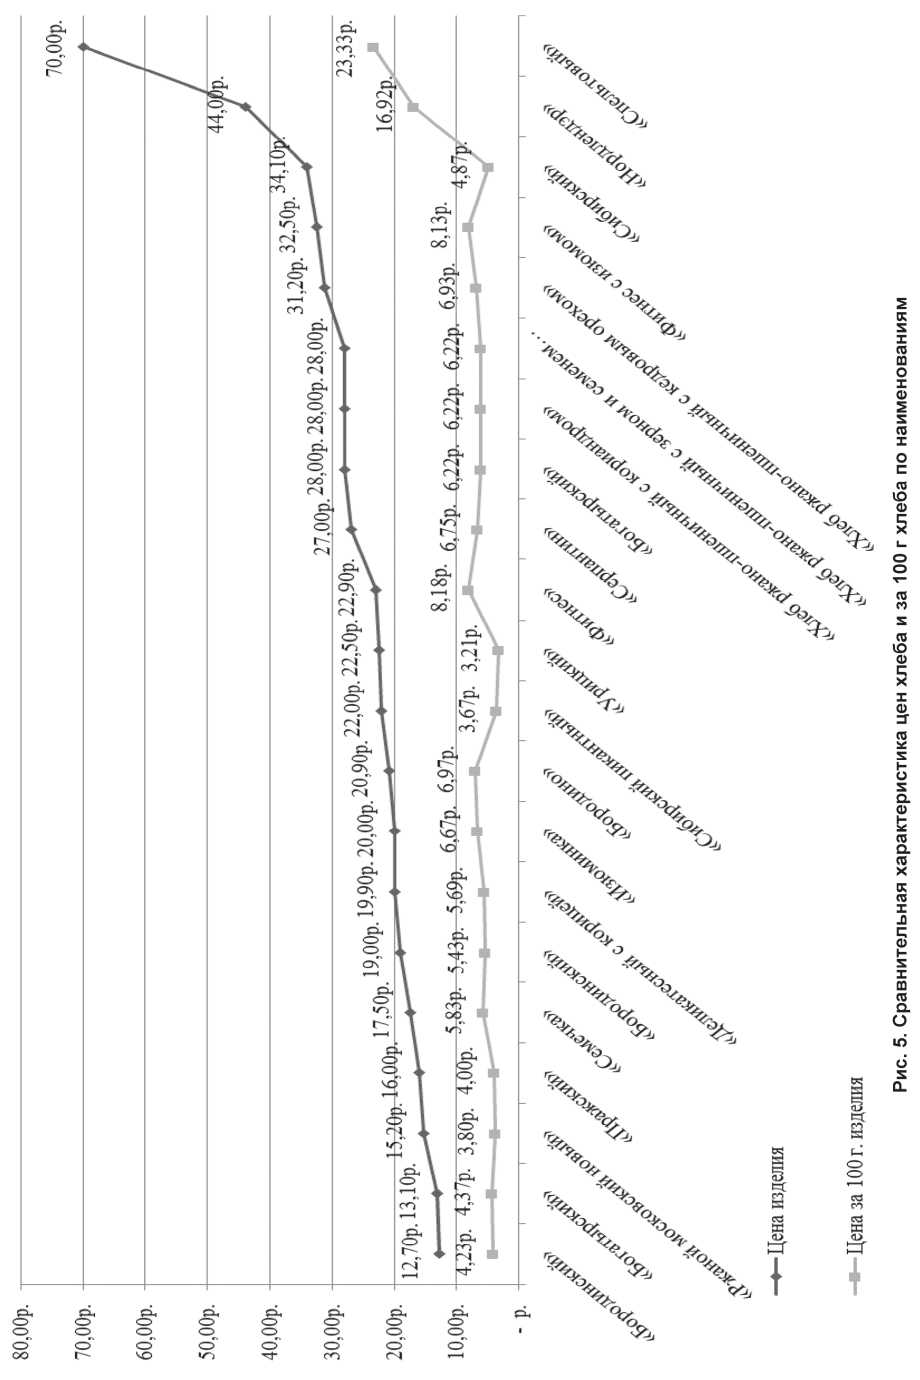 80,00р.
70,00р.
60,00р.
50,00р.
40,00р.
30,00р.
20,00р.
10,00р.
- р.
12,70р.
13,10р.
15,20р.
16,00р.
17,50р.
19,00р.
19,90р.
20,00р.
20,90р.
22,00р.
22,50р.
22,90р.
27,00р.
28,00р.
28,00р.
28,00р.
31,20р.
32,50р.
34,10р.
44,00р.
70,00р.
4,23р.
4,37р.
3,80р.
4,00р.
5,83р.
5,43р.
5,69р.
6,67р.
6,97р.
3,67р.
3,21р.
8,18р.
6,75р.
6,22р.
6,22р.
6,22р.
6,93р.
8,13р.
4,87р.
16,92р.
23,33р.
«Бородинский»
«Богатырский»
«Ржаной московский новый»
«Пражский»
«Семечка»
«Бородинский»
«Деликатесный с корицей»
«Изюминка»
«Бородино»
«Сибирский пикантный»
«Урицкий»
«Фитнес»
«Серпантин»
«Богатырский»
«Хлеб ржано-пшеничный с кориандром»
«Хлеб ржано-пшеничный с зерном и семенем…
«Хлеб ржано-пшеничный с кедровым орехом»
«Фитнес с изюмом»
«Сибирский»
«Нордлендэр»
«Спельтовый»
Цена изделия
Цена за 100 г. изделия
Рис. 5. Сравнительная характеристика цен хлеба и за 100 г хлеба по наименованиям